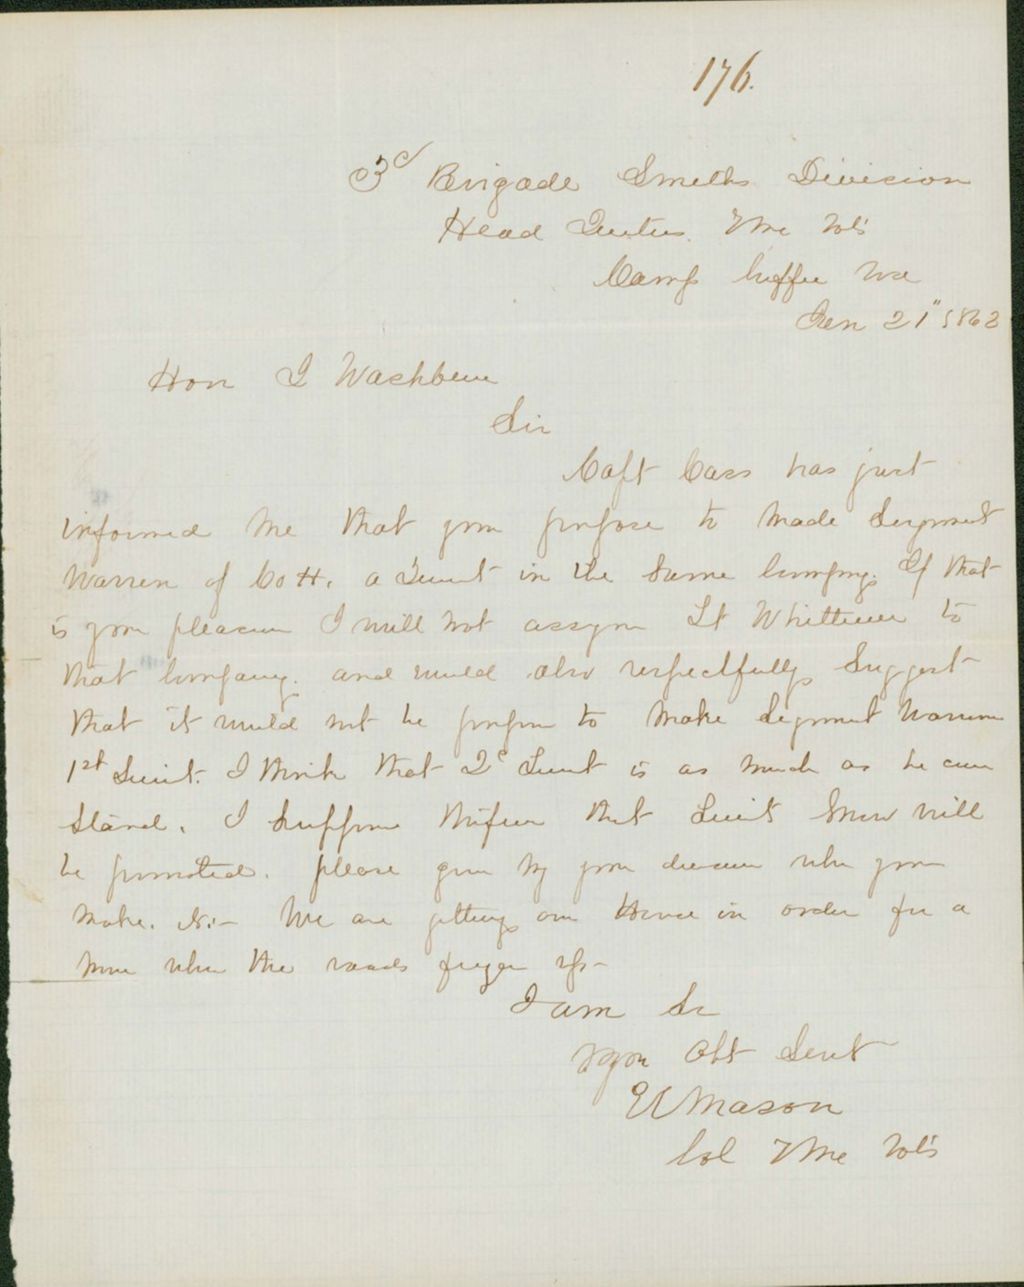 176.
3d Brigade Smiths Division
Head Quters 7 Me Vols
Camp Griffin Va
Jan 21" 1862
Hon I Washburn
Sir
Capt Cass has just
informed me that you propose to made Sergment
Warren of Co H. a Lieut in the same Company. If that
is your pleasure I will not assign Lt Whittier to
that Company. and would also respectfully suggest
that it would not be proper to make Sergment Warren
1st Lieut. I think that 2d Lieut is as much as he can
stand. I suppose that Lieut Snow will
be promoted. please give me your decision when you
make. &c:- We are getting our House in order for a
move when the roads freeze up-
I am Sir
your Obt Servt
E C Mason
Col 7 Me Vols